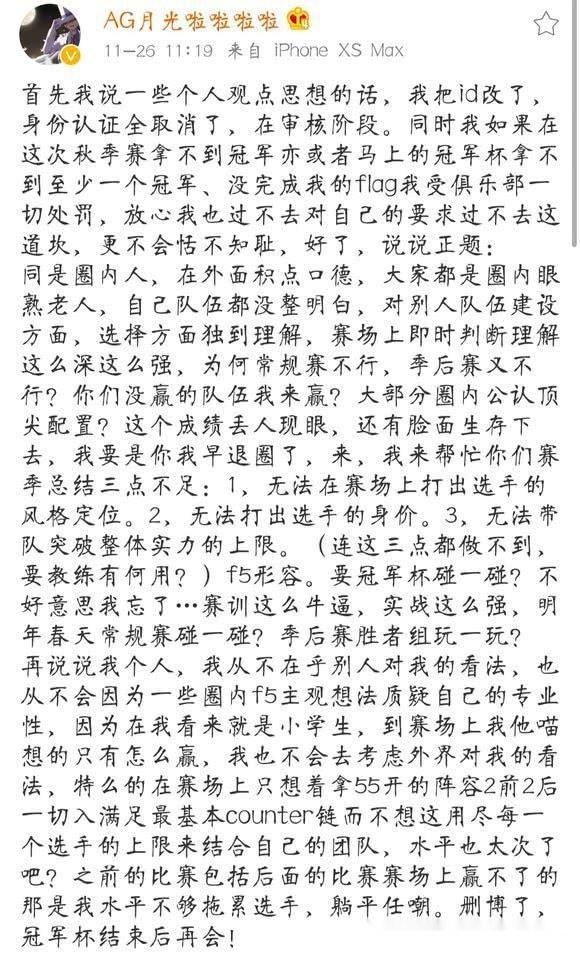 AG月光啦啦啦啦啦
11-26 11:19 来自 iPhone XS Max
首先我说一些个人观点思想的话，我把id改了，
身份认证全取消了，在审核阶段。同时我如果在
这次秋季赛拿不到冠军亦或者马上的冠军杯拿不
到至少一个冠军、没完成我的flag我受俱乐部一
切处罚，放心我也过不去对自己的要求过不去这
道坎，更不会恬不知耻，好了，说说正题：
同是圈内人，在外面积点口德，大家都是圈内眼
熟老人，自己队伍都没整明白，对别人队伍建设
方面，选择方面独到理解，赛场上即时判断理解
这么深这么强，为何常规赛不行，季后赛又不
行？你们没赢的队伍我来赢？大部分圈内公认顶
尖配置？这个成绩丢人现眼，还有脸面生存下
去，我要是你我早退圈了，来，我来帮忙你们赛
季总结三点不足：1，无法在赛场上打出选手的
风格定位。2，无法打出选手的身价。3，无法带
队突破整体实力的上限。（连这三点都做不到，
要教练有何用？）f5形容。要冠军杯碰一碰？不
好意思我忘了…赛训这么牛逼，实战这么强，明
年春天常规赛碰一碰？季后赛胜者组玩一玩？
再说说我个人，我从不在乎别人对我的看法，也
从不会因为一些圈内f5主观想法质疑自己的专业
性，因为在我看来就是小学生，到赛场上我他喵
想的只有怎么赢，我也不会去考虑外界对我的看
法，特么的在赛场上只想着拿55开的阵容2前2后
一切入满足最基本counter链而不想这用尽每一
个选手的上限来结合自己的团队，水平也太次了
吧？之前的比赛包括后面的比赛赛场上赢不了的
那是我水平不够拖累选手，躺平任嘲。删博了，
冠军杯结束后再会！